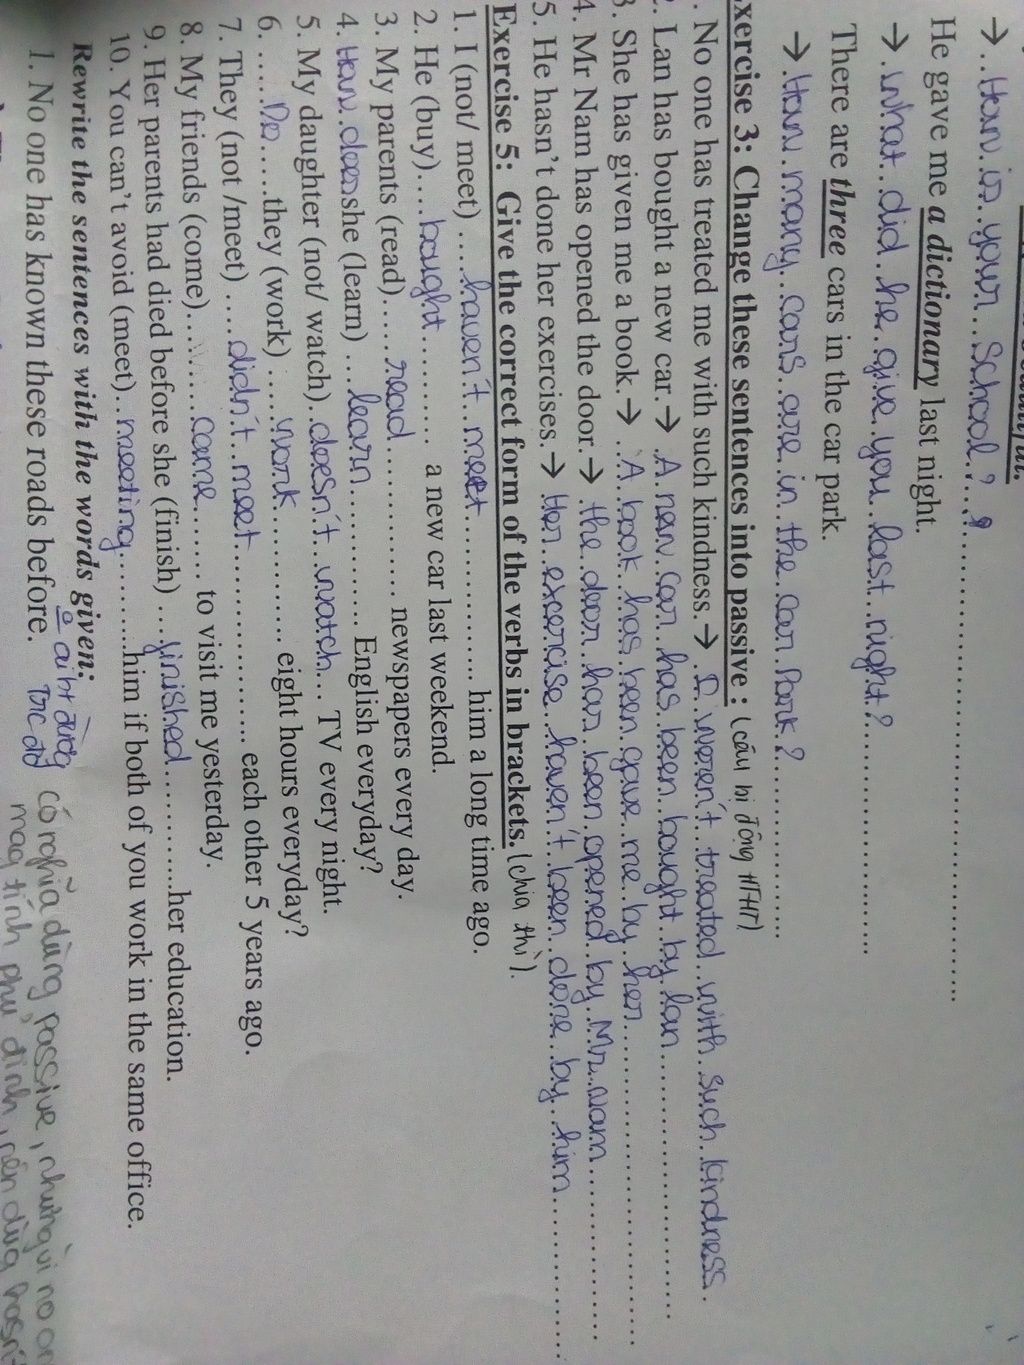 → ..How..is..your...school..?...?
He gave me a dictionary last night.
→ .what..did..he..give..you..last..night?
There are three cars in the car park.
→ .How..many..cars..are..in..the..car.Park?
xercise 3: Change these sentences into passive : (câu bị động HTHT)
. No one has treated me with such kindness.→ .I..weren't..treated..with..such..kindness.
. Lan has bought a new car.→ .A.new.car..has..been..bought..by.lan
3. She has given me a book.→ ..A..book..has..been.gave..me..by..her
4. Mr Nam has opened the door.→ .the..door..has..been.opened..by..Mr..nam
5. He hasn't done her exercises.→ Her..exercise..haven't..been..done..by..him
Exercise 5: Give the correct form of the verbs in brackets. (chia thì).
1. I (not/ meet) ....haven't..meet............... him a long time ago.
2. He (buy)....bought............ a new car last weekend.
3. My parents (read).....read............... newspapers every day.
4. How.does she (learn) ...learn............ English everyday?
5. My daughter (not/ watch)..doesn't..watch... TV every night.
6. .....Do.....they (work) ....work............ eight hours everyday?
7. They (not /meet) ....didn't..meet................. each other 5 years ago.
8. My friends (come).........came....... to visit me yesterday.
9. Her parents had died before she (finish) ....finished.............her education.
10. You can't avoid (meet)..meeting...........him if both of you work in the same office.
Rewrite the sentences with the words given:
1. No one has known these roads before.
có nghĩa dùng passive, nhưng vì no on
mag tính phủ định, nên dùng hasn't